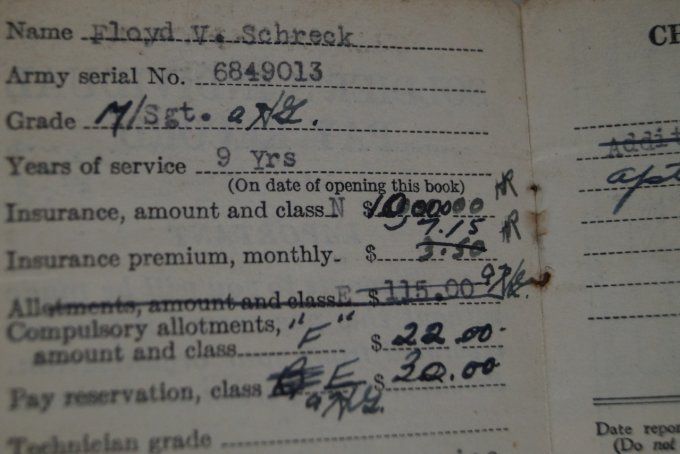 Name Floyd V. Schreck
CH
Army serial No. 6849013
Grade M/Sgt.
Years of service 9 Yrs
(On date of opening this book)
Insurance, amount and class N $
Insurance premium, monthly $ 7.15
3.50
Allotments, amount and class E $115.00
Compulsory allotments, "F"
amount and class $ 22.00
Pay reservation, class E $
Technician grade
Addit
Date repor
(Do not